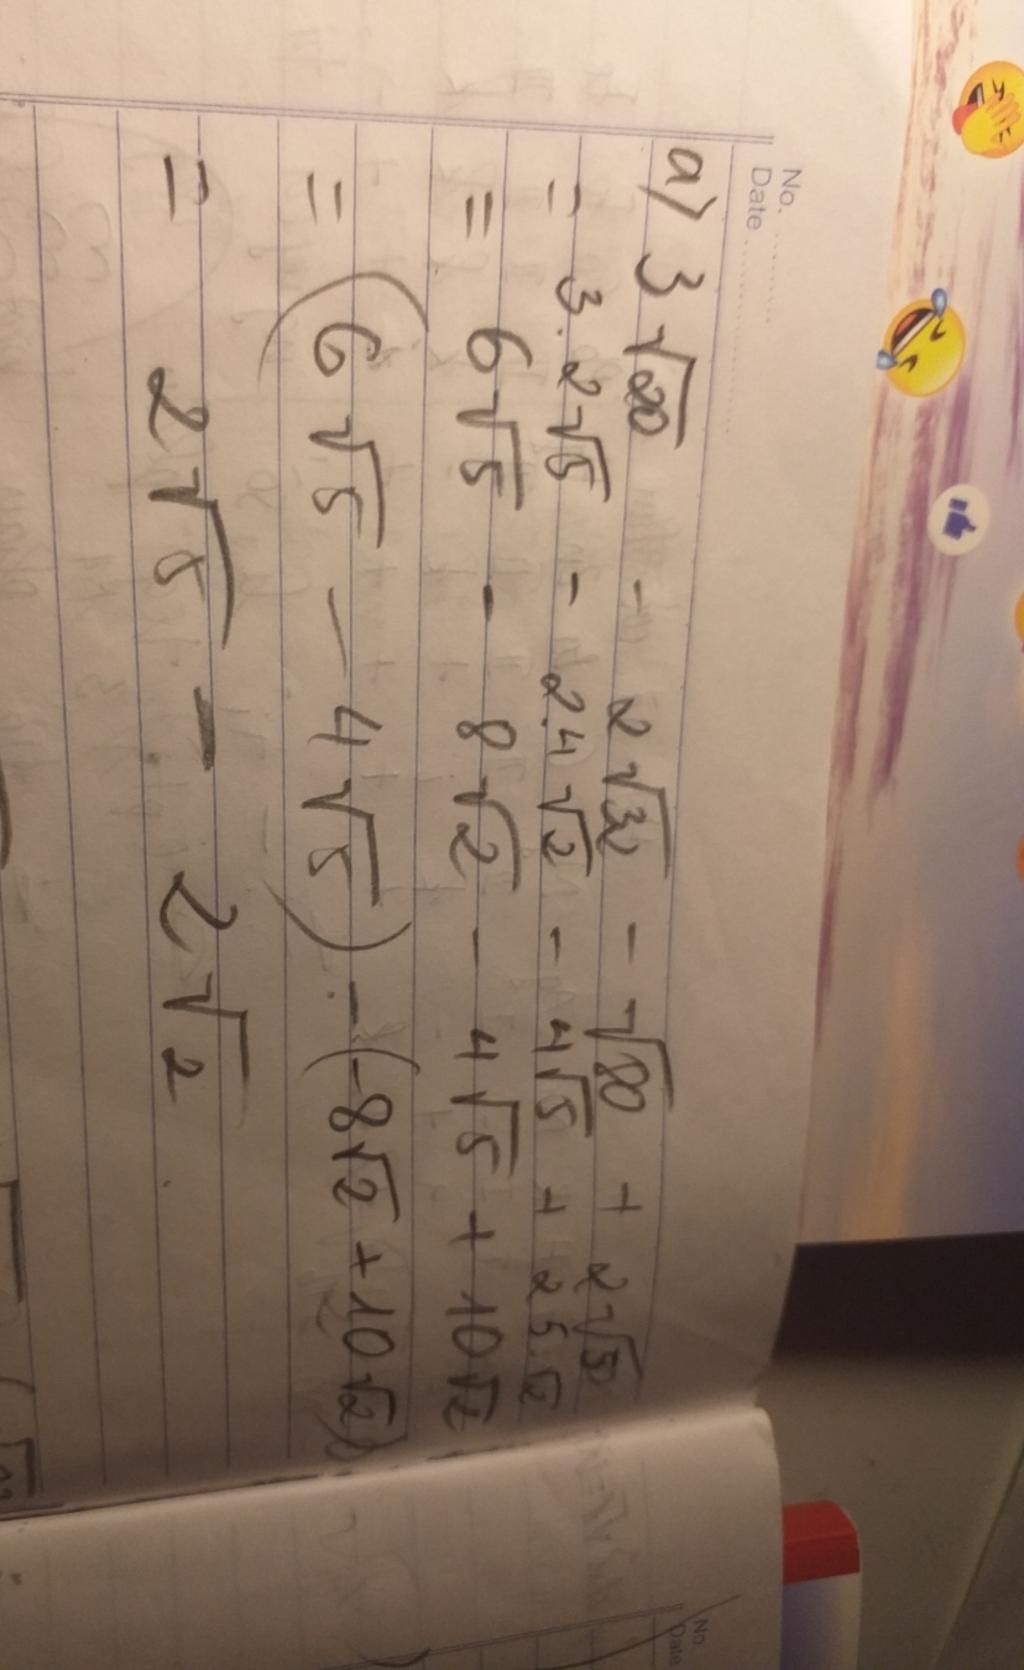 No.
Date
a) 3√20 - 2√32 - √80 + 2√50
= 3.2√5 - 2.4√2 - 4√5 + 2 5.√2
= 6√5 - 8√2 - 4√5 + 10√2
= (6√5 - 4√5) - (-8√2 + 10√2)
= 2√5 - 2√2
No.
Date